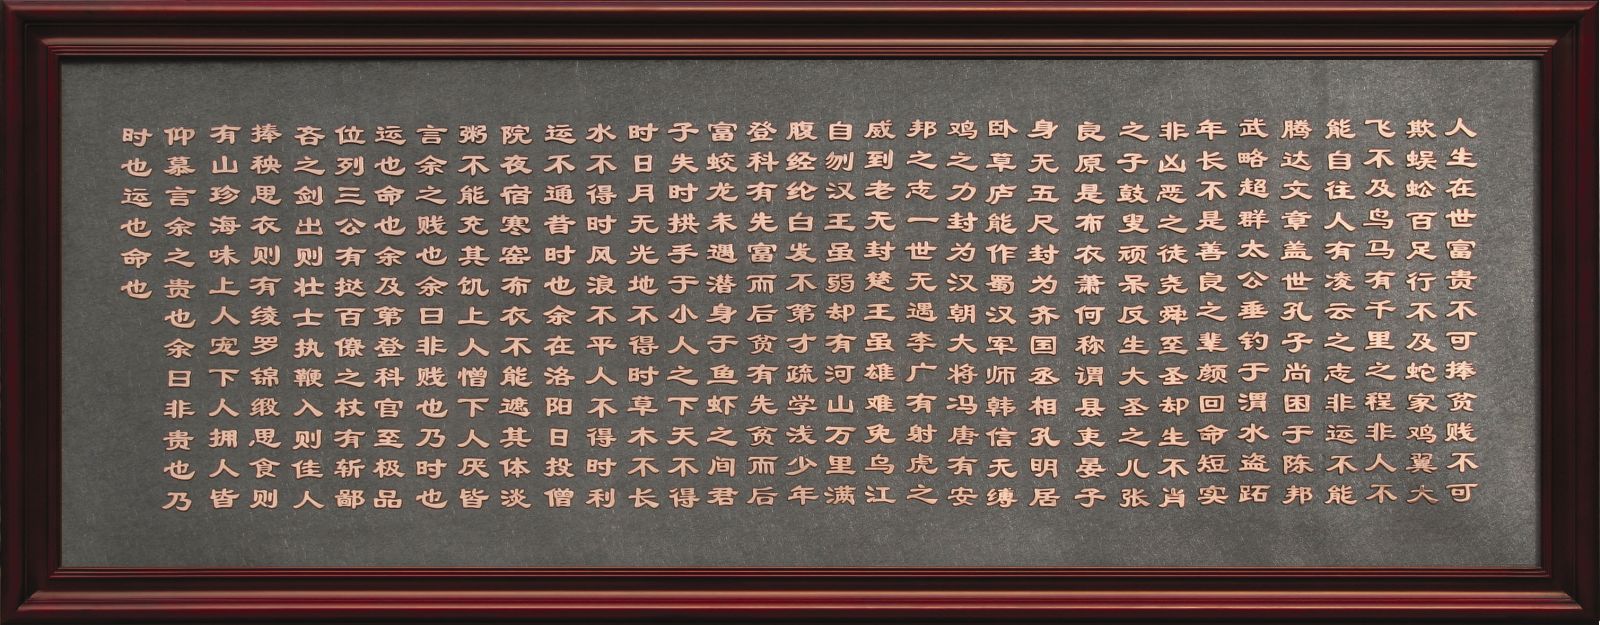 人生在世富贵不可捧贫贱不可
欺蜈蚣百足行不及蛇家鸡翼大
飞不及鸟马有千里之程非人不
能自往人有凌云之志非运不能
腾达文章盖世孔子尚困于陈邦
武略超群太公垂钓于渭水盗跖
年长不是善良之辈颜回命短实
非凶恶之徒尧舜至圣却生不肖
之子鼓叟顽呆反生大圣之儿张
良原是布衣萧何称谓县吏晏子
身无五尺封为齐国丞相孔明居
卧草庐能作蜀汉军师韩信无缚
鸡之力封为汉朝大将冯唐有安
邦之志一世无遇李广有射虎之
威到老无封楚王虽雄难免乌江
自刎汉王虽弱却有河山万里满
腹经纶白发不第才疏学浅少年
登科有先富而后贫有先贫而后
富蛟龙未遇潜身于鱼虾之间君
子失时拱手于小人之下天不得
时日月无光地不得时草木不长
水不得时风浪不平人不得时利
运不通昔时也余在洛阳日投僧
院夜宿寒窑布衣不能遮其体淡
粥不能充其饥上人憎下人厌皆
言余之贱也余曰非贱也乃时也
运也命也余及第登科官至极品
位列三公有挞百僚之杖有斩鄙
吝之剑出则壮士执鞭入则佳人
捧秧思衣则有绫罗锦缎思食则
有山珍海味上人宠下人拥人皆
仰慕言余之贵也余曰非贵也乃
时也运也命也